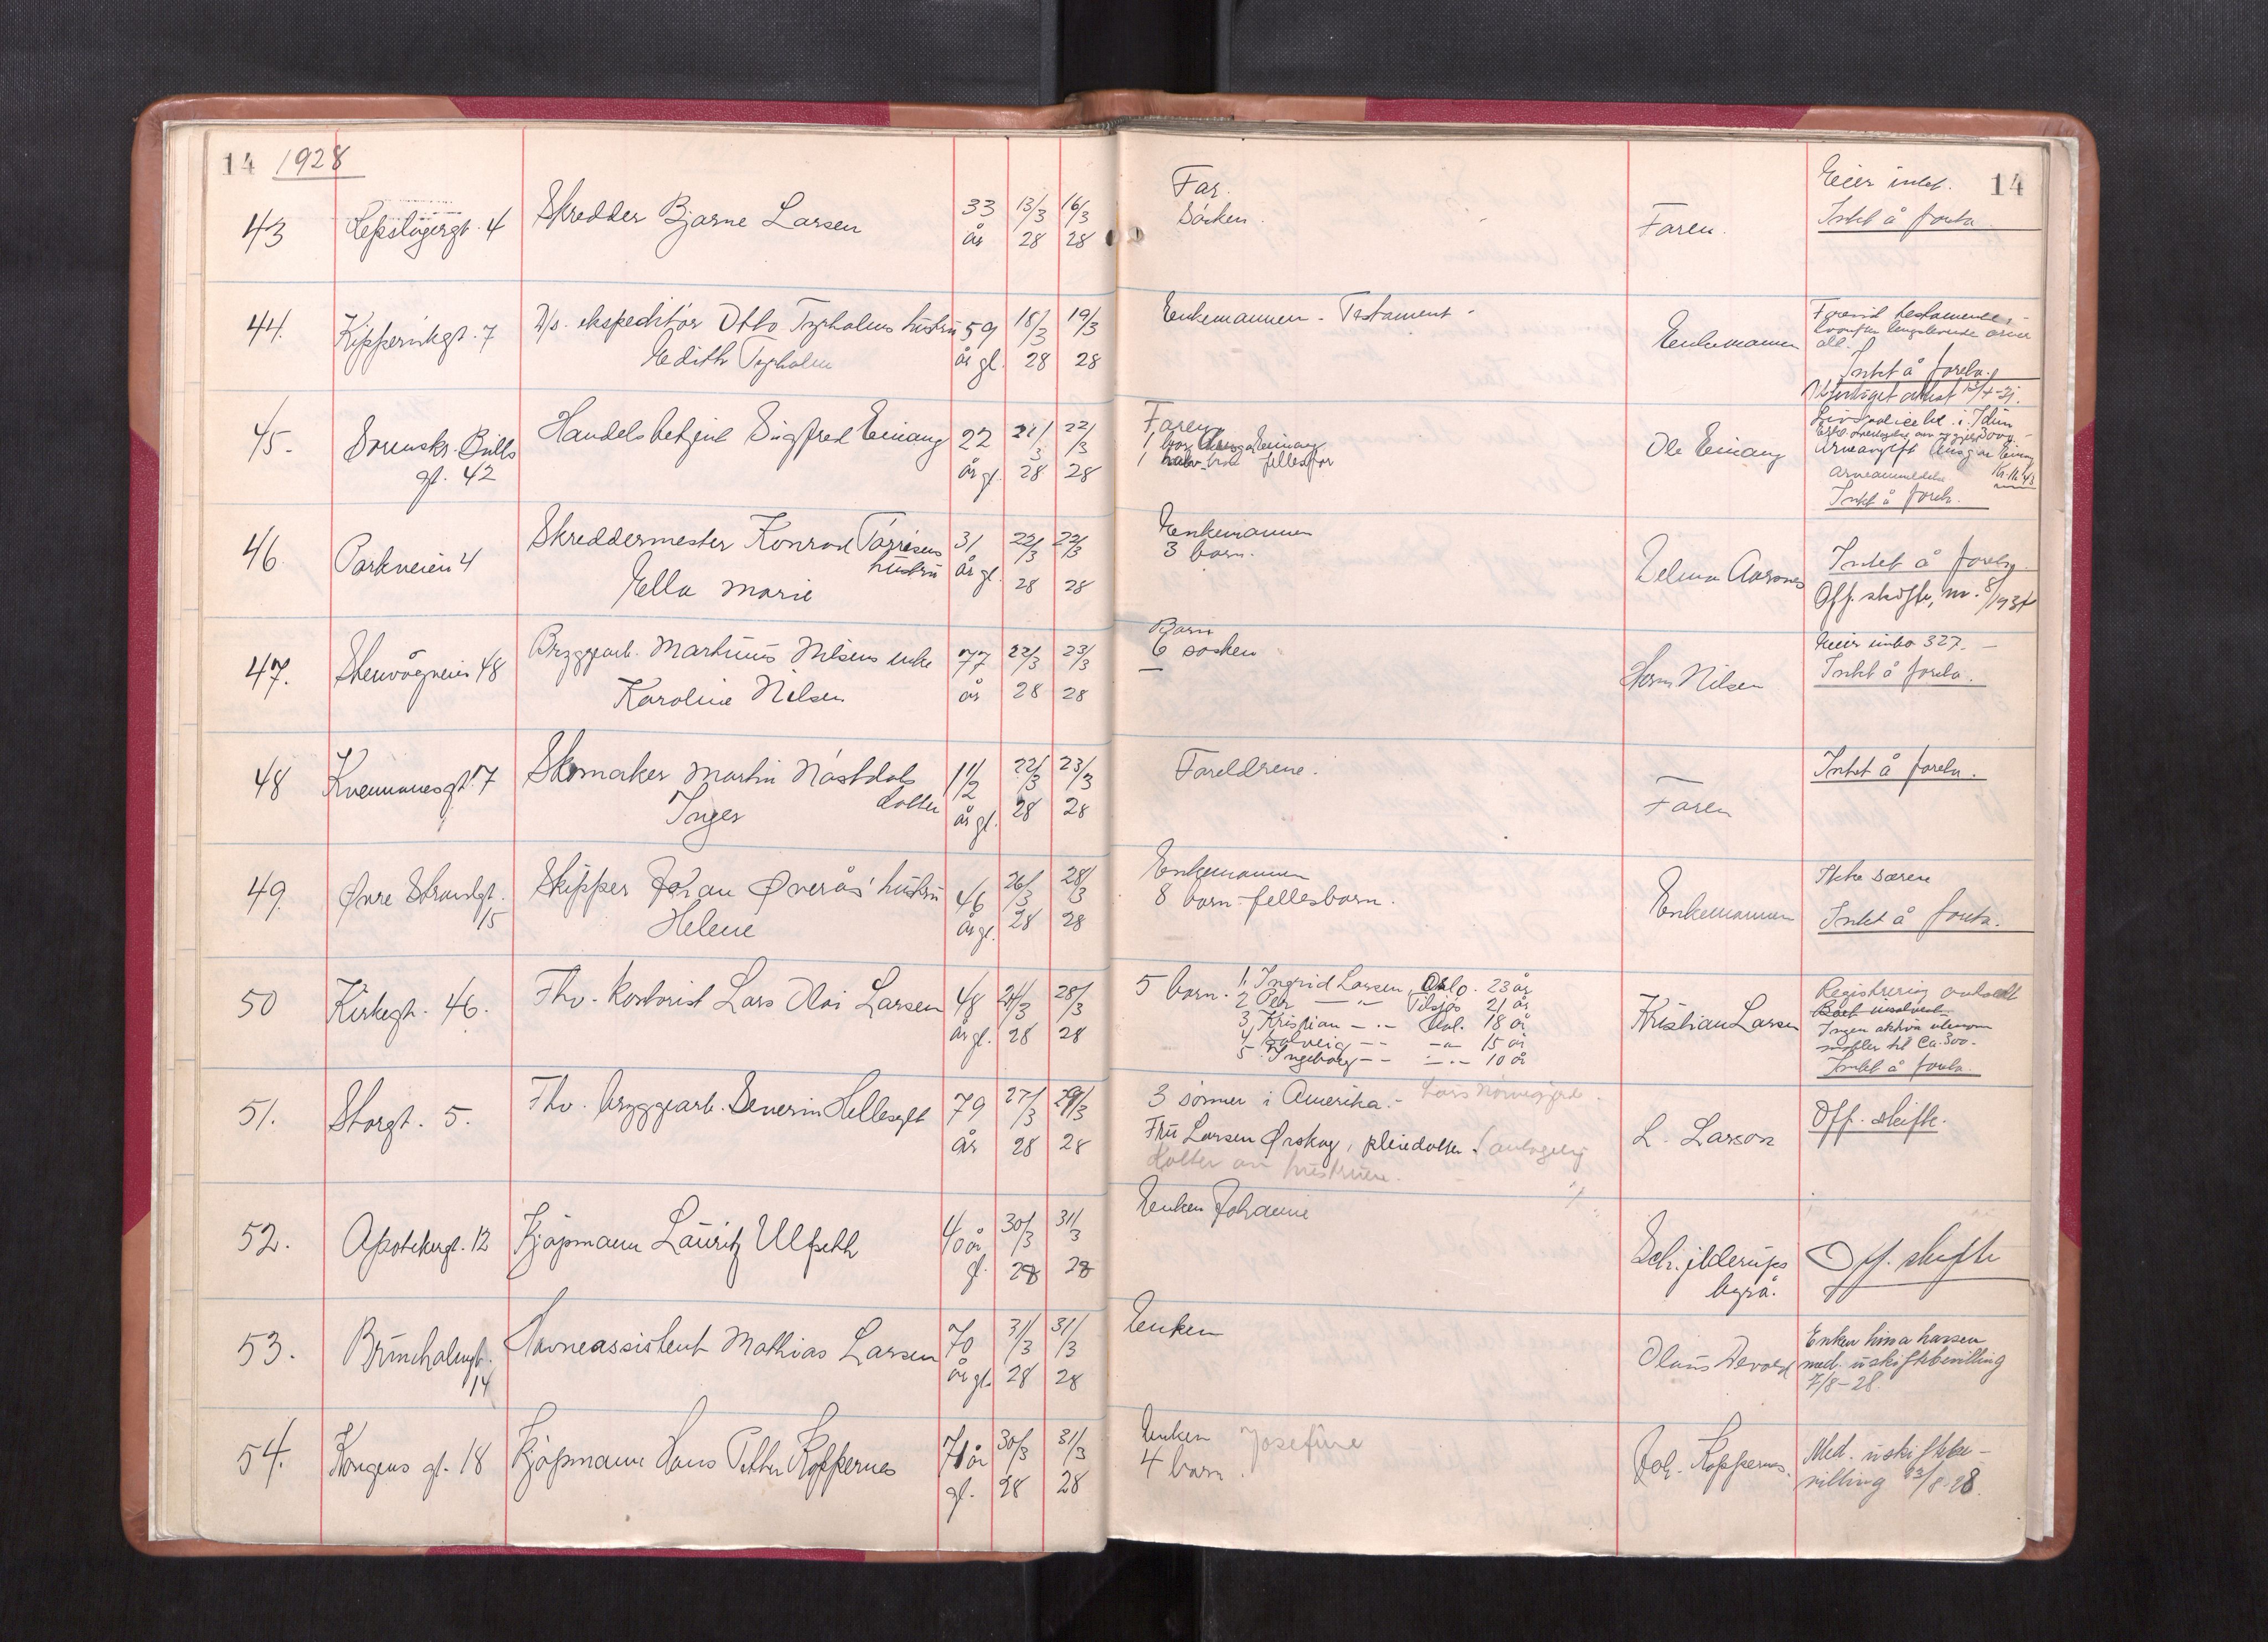 14 1928
14
43 4 Skredder Bjarne Larsen 33 år 13/3 28 16/3 28
Far.
Søsken.
Faren.
Eier intet.
Intet å foreta.
44. 7 ekspeditør Otto hustru 59 år gl. 18/3 28 19/3 28
Edith
Enkemannen - Testament -
Enkemannen
testamente
lengstlevende arver
alt.
Intet å foreta.
45. Sorenskr. Bulls
gt. 42
Handelsbetjent Sigfred Einang 22 år gl. 21/3 28 22/3 28
Faren
1 bror Einang
1 halvbror
Ole Einang
i Idun
Arveavgift Einang
Arveanmeldelse
Intet å foreta.
46. Parkveien 4
Skreddermester Konrad Tørrisens
hustru
Ella Marie
31 år gl. 22/3 28 22/3 28
Enkemannen
3 barn.
Aarsnes
Intet å foreta.
Off. skifte, nr. 8/1937
47. 48
Bryggearb. Martinus Nilsens enke
Karoline Nilsen
77 år 22/3 28 23/3 28
Barn
6 søsken
Nilsen
Eier innbo 327.-
Intet å foreta.
48 17
Skomaker Martin Nåstdals
datter
Inger
1 1/2 år gl. 22/3 28 23/3 28
Foreldrene.
Faren
Intet å foreta.
49. Øvre Strandgt.
15
Skipper Johan Øverås' hustru
Helene
46 år gl. 26/3 28 28/3 28
Enkemannen
8 barn - fellesbarn.
Enkemannen
Ikke særeie
Intet å foreta.
50 Kirkegt. 46.
Fhv. kontorist Lars Olai Larsen 48 år gl. 28 28/3 28
5 barn. 1, Ingrid Larsen, Oslo. 23 år
2 Petr — " — 21 år
3, Kristian — " — 18 år
4 Solveig — " — 15 år
5 Ingeborg — " — 10 år
Kristian Larsen
Registrering avholdt
Boet insolvent
Ingen aktiva utenom
møbler til Ca. 300.-
Intet å foreta.
51. Storgt. 5.
Fhv. bryggearb. Severin Hellesylt 79 år 27/3 28 29/3 28
3 sønner i Amerika.-
Fru Larsen Ørskog, pleiedatter. (antagelig
datter av hustruen.
L. Larson
Off. skifte.
52. Apotekergt. 12
Kjøpmann Lauritz Ulfseth 40 år gl. 30/3 28 31/3 28
Enken Johanne
Schjelderups
byrå.
Off. skifte
53. Brunholmgt.
14
Havneassistent Mathias Larsen 70 år gl. 31/3 28 31/3 28
Enken
Olaus Devold
Enken Larsen
med. uskiftebevilling
7/8-28
54. Kongens gt. 18
Kjøpmann Hans Petter Koppernes 71 år gl. 30/3 28 31/3 28
Enken Josefine
4 barn.
Joh. Koppernes.
Med. uskiftebe-
villing 23/8-28.